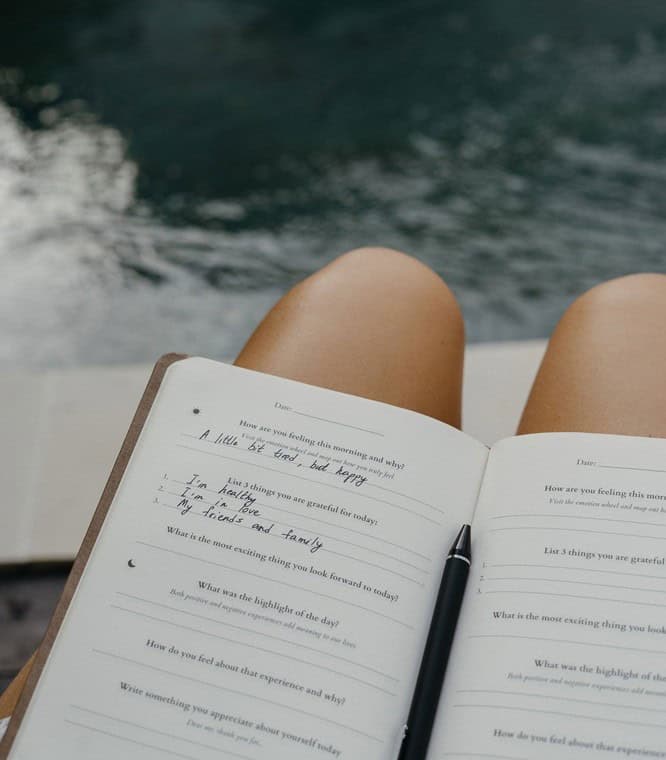 Date:
How are you feeling this morning and why?
Visit the emotion wheel and map out how you truly feel
A little bit tired, but happy
List 3 things you are grateful for today:
1. I'm healthy
2. I'm in love
3. My friends and family
What is the most exciting thing you look forward to today?
What was the highlight of the day?
Both positive and negative experiences add meaning to our lives
How do you feel about that experience and why?
Write something you appreciate about yourself today
Dear me, thank you for,
Date:
How are you feeling this morn
Visit the emotion wheel and map out
List 3 things you are grateful
1.
2.
3.
What is the most exciting thing you look
What was the highlight of the
Both positive and negative experiences add
How do you feel about that experience